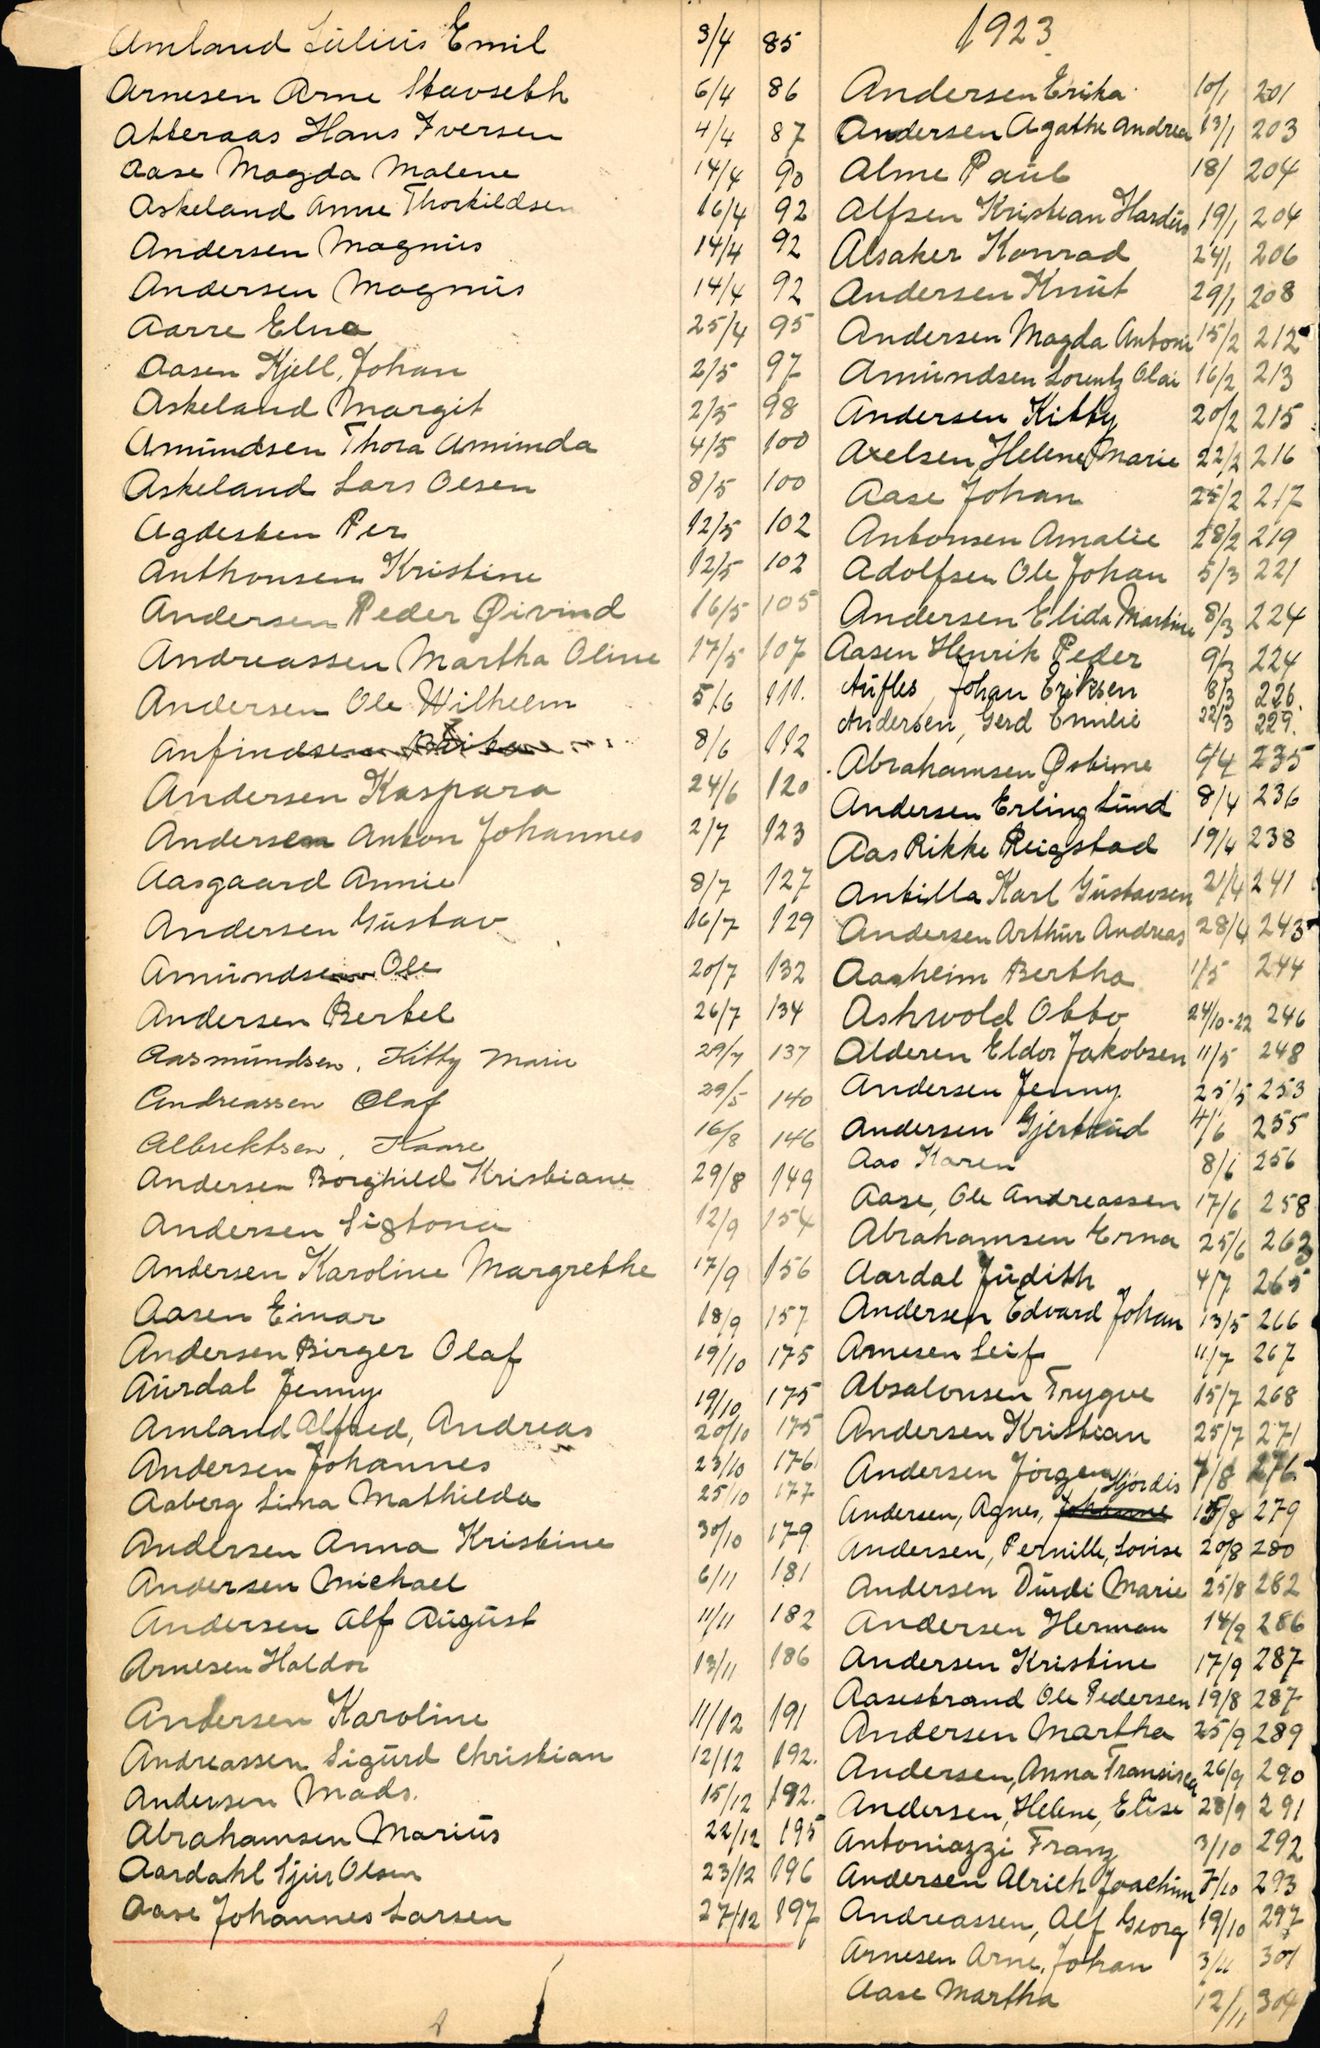 Amland Julius Emil 3/4 85
Arnesen Arne Stavseth 6/4 86
Atteraas Hans Iversen 4/4 87
Aase Magda Malene 14/4 90
Askeland Anne Thorkildsen 16/4 92
Andersen Magnus 14/4 92
Andersen Magnus 14/4 92
Aarre Elna 25/4 95
Aasen Kjell, Johan 2/5 97
Askeland Margit 2/5 98
Amundsen Thora Aminda 4/5 100
Askeland Lars Olsen 8/5 100
Agdesten Per 12/5 102
Anthonsen Kristine 12/5 102
Andersen Peder Øivind 16/5 105
Andreassen Martha Oline 17/5 107
Andersen Ole Wilhelm 5/6 111.
Anfindsen 8/6 112
Andersen Kaspara 24/6 120
Andersen Anton Johannes 2/7 123
Aasgaard Annie 8/7 127
Andersen Gustav 16/7 129
Amundsen Ole 20/7 132
Andersen Bertel 26/7 134
Aasmundsen, Kitty Marie 29/7 137
Andreassen Olaf 29/5 140
Albrektsen, Kaare 16/8 146
Andersen Borghild Kristiane 29/8 149
Andersen Sigtona 12/9 154
Andersen Karoline Margrethe 17/9 156
Aasen Einar 18/9 157
Andersen Birger Olaf 19/10 175
Aurdal Jenny 19/10 175
Amland Alfred, Andreas 20/10 175
Andersen Johannes 23/10 176
Aaberg Lina Mathilda 25/10 177
Andersen Anna Kristine 30/10 179
Andersen Michael 6/11 181
Andersen Alf August 11/11 182
Arnesen Haldor 13/11 186
Andersen Karoline 11/12 191
Andreassen Sigurd Christian 12/12 192.
Andersen Mads. 15/12 192.
Abrahamsen Marius 22/12 195
Aardahl Sjur Olsen 23/12 196
Aase Johannes Larsen 27/12 197
1923
Andersen Erika 10/1 201
Andersen Agathe Andrea 13/1 203
Alme Paul 18/ 204
Alfsen Kristian Hardus 19/1 204
Alsaker Konrad 24/1 206
Andersen Knut 29/1 208
Andersen Magda Antoni 15/2 212
Amundsen Lorentz Olai 16/2 213
Andersen Kitty 20/2 215
Axelsen Helene Marie 22/2 216
Aase Johan 25/2 217
Antonsen Amalie 28/2 219
Adolfsen Ole Johan 5/3 221
Andersen Elida Martine 8/3 224
Aasen Henrik Peder 9/3 224
Aufles, Johan Eriksen 8/3 226.
Andersen, Gerd Emilie 22/3 229.
Abrahamsen Østine 5/4 235
Andersen Erling Lund 8/4 236
Aas Rikke Reigstad 19/4 238
Antilla Karl Gustavsen 21/4 241
Andersen Arthur Andreas 28/4 243
Aasheim Bertha 1/5 244
Ashwold Otto 24/10-22 246
Alderen Eldor Jakobsen 11/5 248
Andersen Jenny 25/5 253
Andersen Gjertrud 4/6 255
Aas Karen 8/6 256
Aase, Ole Andreassen 17/6 258
Abrahamsen Erna 25/6 263
Aardal Judith 4/7 265
Andersen Edvard Johan 13/5 266
Arnesen Leif 11/7 267
Absalonsen Trygve 15/7 268
Andersen Kristian 25/7 271
Andersen Jörgen 7/8 276
Andersen, Agnes, Johanne Hjördis 15/8 279
Andersen, Pernille, Lovise 20/8 280
Andersen Durdi Marie 25/8 282
Andersen Herman 14/9 286
Andersen Kristine 17/9 287
Aasestrand Ole Pedersen 19/8 287
Andersen Martha 25/9 289
Andersen, Anna Fransisca 26/9 290
Andersen, Helene, Elise 28/9 291
Antoniazzi Franz 3/10 292
Andersen Alrich Joachim 7/10 293
Andreassen, Alf Georg 19/10 297
Arnesen Arne, Johan 3/11 301
Aase Martha 12/11 304